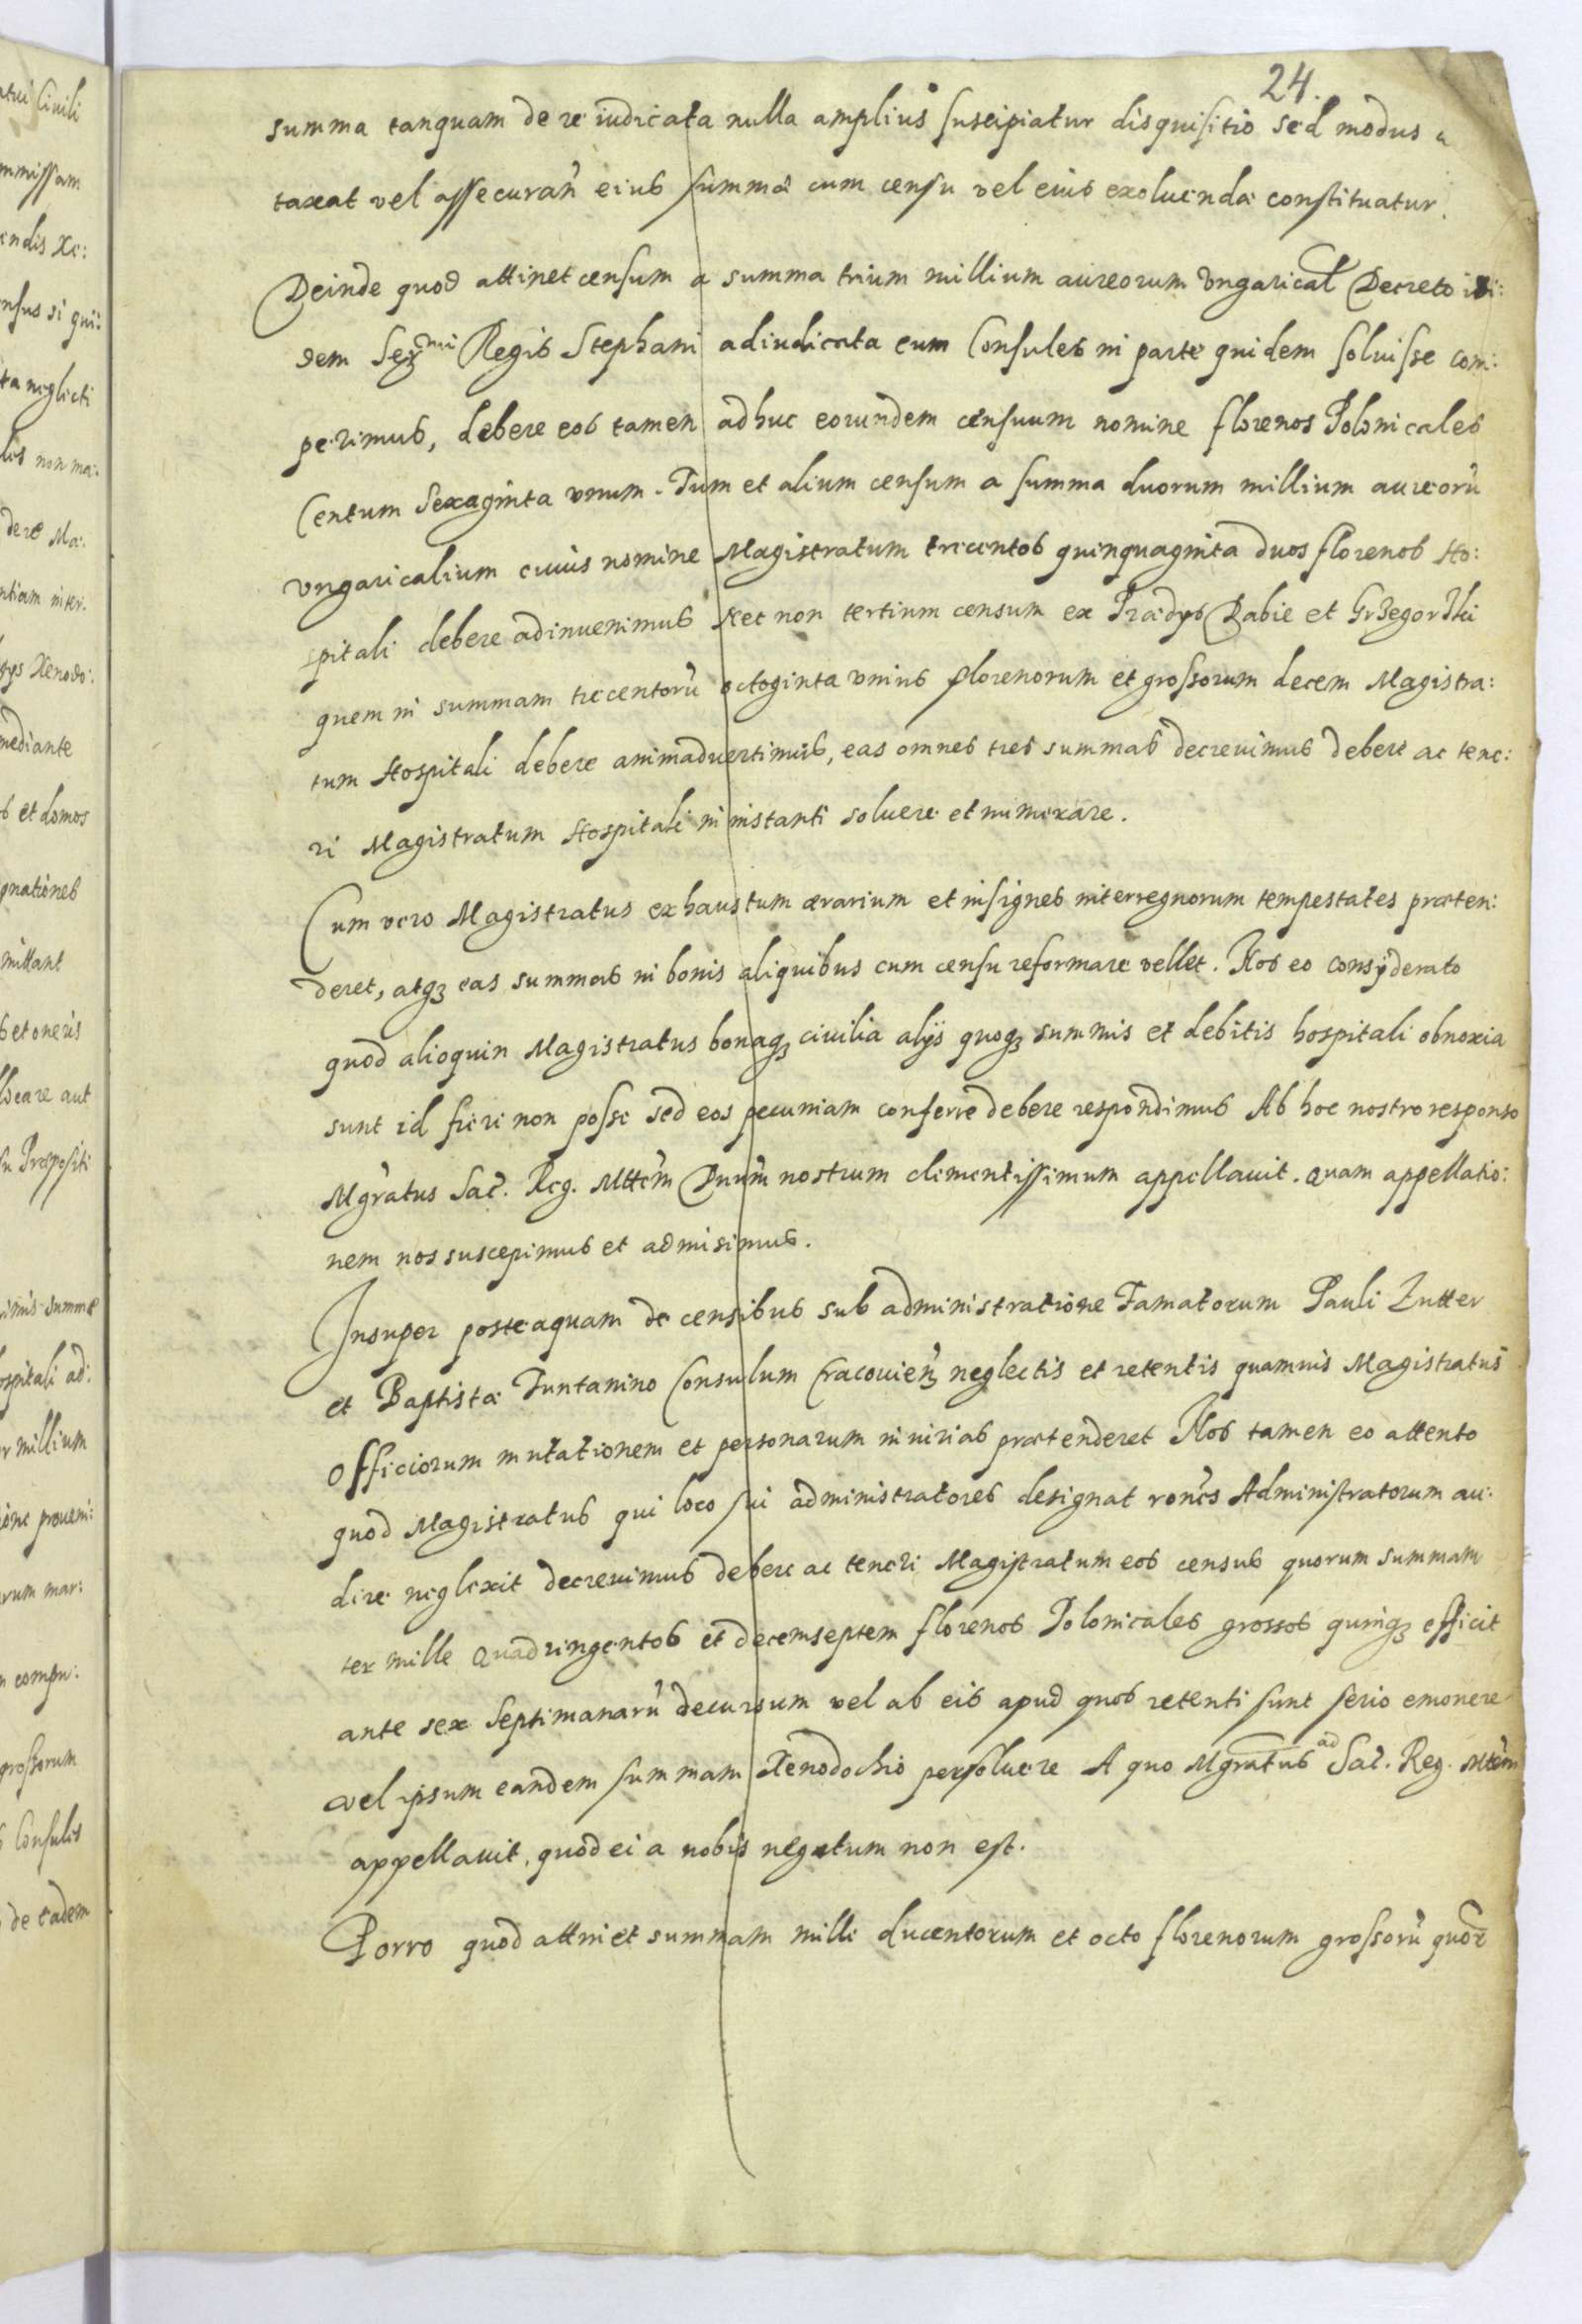 24.
summa tanquam de re iudicata nulla amplius suscipiatur disquisitio sed modus
taxat vel assecuran̄ eius summæ cum censu vel eius exoluendæ constituatur.
Deinde quod attinet censum a summa trium millium aureorum Vngarical Decreto
dem Serᵐⁱ Regis Stephani adiudicata eum Consules in parte quidem soluisse com:
perimus, debere eos tamen adhuc eorundem censuum nomine florenos Polonicales
Centum Sexaginta vnum. Tum et alium censum a summa duorum millium aureorū
vngaricalium cuius nomine Magistratum trecentos quinquaginta duos florenos Ho:
spitali debere adinuenimus Nec non tertium censum ex Prædijs Dabie et Grzegorzki
quem in summam trecentorū octoginta vnius florenorum et grossorum decem Magistra:
tum Hospitali debere animaduertimus, eas omnes tres summas decreuimus debere ac tene:
ri Magistratum Hospitali in instanti soluere et numerare.
Cum vero Magistratus exhaustum ærarium et insignes interregnorum tempestates præten:
deret, atqꝫ eas summas in bonis aliquibus cum censu reformare vellet. Nos eo consyderato
quod alioquin Magistratus bonaqꝫ ciuilia alijs quoqꝫ summis et debitis hospitali obnoxia
sunt id fieri non posse sed eos pecuniam conferre debere respondimus Ab hoc nostro responso
Mgr̄atus Sac̄. Reg. Mttēm Dnūm nostrum clementissimum appellauit. Quam appellatio:
nem nos suscepimus et admisimus.
Insuper posteaquam de censibus sub administratione Famatorum Pauli Zutter
et Baptistæ Funtanino Consulum Cracouien̄ neglectis et retentis quamuis Magistratus
officiorum mutationem et personarum iniurias prætenderet Nos tamen eo attento
quod Magistratus qui loco sui administratores designat ronēs Administratorum au:
dire neglexit decreuimus debere ac teneri Magistratum eos census quorum summam
ter mille Quadringentos et decemseptem florenos Polonicales grossos quinqꝫ efficit
ante sex Septimanarū decursum vel ab eis apud quos retenti sunt serio emonere
vel ipsum eandem summam Xenodochio persoluere A quo Mgratus ad Sac̄. Reg. Mttēm
appellauit, quod ei a nobis negatum non est.
Porro quod attinet summam mille ducentorum et octo florenorum grossorū quor